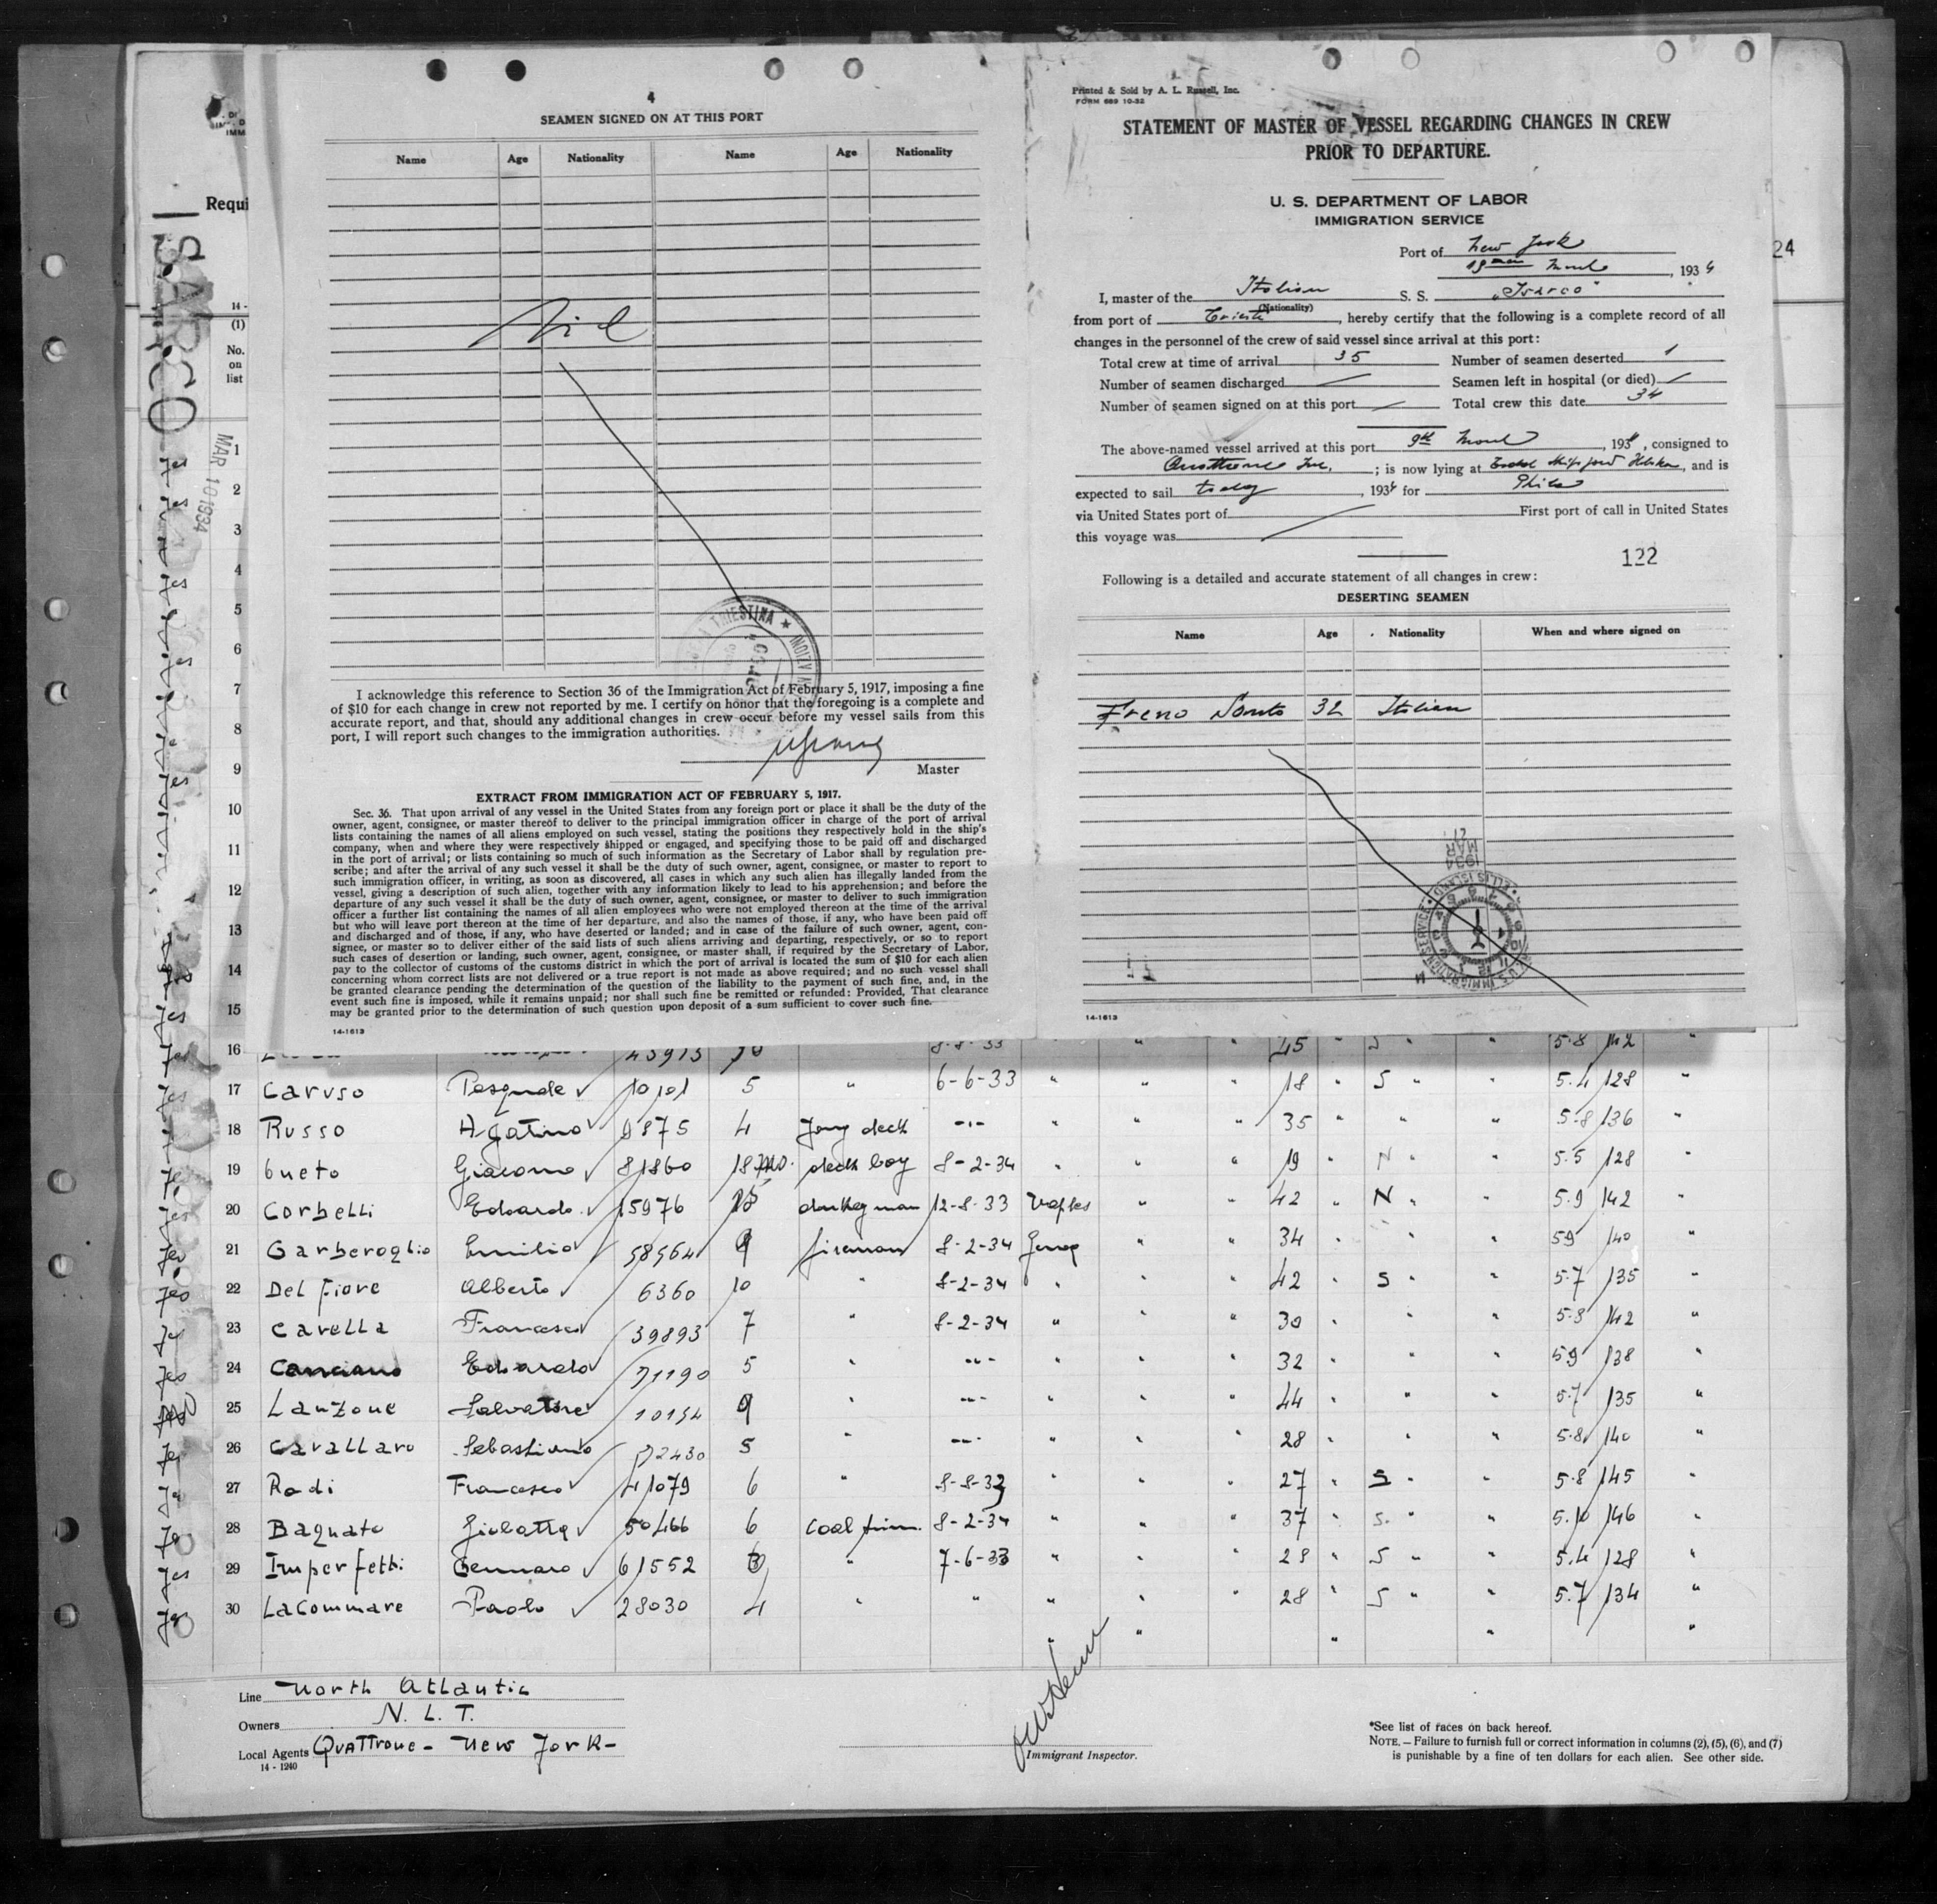 4
SEAMEN SIGNED ON AT THIS PORT
Name Age Nationality Name Age Nationality
Nil
I acknowledge this reference to Section 36 of the Immigration Act of February 5, 1917, imposing a fine
of $10 for each change in crew not reported by me. I certify on honor that the foregoing is a complete and
accurate report, and that, should any additional changes in crew occur before my vessel sails from this
port, I will report such changes to the immigration authorities.
Master
EXTRACT FROM IMMIGRATION ACT OF FEBRUARY 5, 1917.
Sec. 36. That upon arrival of any vessel in the United States from any foreign port or place it shall be the duty of the
owner, agent, consignee, or master thereof to deliver to the principal immigration officer in charge of the port of arrival
lists containing the names of all aliens employed on such vessel, stating the positions they respectively hold in the ship's
company, when and where they were respectively shipped or engaged, and specifying those to be paid off and discharged
in the port of arrival; or lists containing so much of such information as the Secretary of Labor shall by regulation pre-
scribe; and after the arrival of any such vessel it shall be the duty of such owner, agent, consignee, or master to report to
such immigration officer, in writing, as soon as discovered, all cases in which any such alien has illegally landed from the
vessel, giving a description of such alien, together with any information likely to lead to his apprehension; and before the
departure of any such vessel it shall be the duty of such owner, agent, consignee, or master to deliver to such immigration
officer a further list containing the names of all alien employees who were not employed thereon at the time of the arrival
but who will leave port thereon at the time of her departure, and also the names of those, if any, who have been paid off
and discharged and of those, if any, who have deserted or landed; and in case of the failure of such owner, agent, con-
signee, or master so to deliver either of the said lists of such aliens arriving and departing, respectively, or so to report
such cases of desertion or landing, such owner, agent, consignee, or master shall, if required by the Secretary of Labor,
pay to the collector of customs of the customs district in which the port of arrival is located the sum of $10 for each alien
concerning whom correct lists are not delivered or a true report is not made as above required; and no such vessel shall
be granted clearance pending the determination of the question of the liability to the payment of such fine, and, in the
event such fine is imposed, while it remains unpaid; nor shall such fine be remitted or refunded: Provided, That clearance
may be granted prior to the determination of such question upon deposit of a sum sufficient to cover such fine.
14-1613
Printed & Sold by A. L. Russell, Inc.
FORM 689 10-32
STATEMENT OF MASTER OF VESSEL REGARDING CHANGES IN CREW
PRIOR TO DEPARTURE.
U. S. DEPARTMENT OF LABOR
IMMIGRATION SERVICE
Port of New York
, 1934
I, master of the Italian S. S. "Isarco"
(Nationality)
from port of Trieste, hereby certify that the following is a complete record of all
changes in the personnel of the crew of said vessel since arrival at this port:
Total crew at time of arrival 35 Number of seamen deserted 1
Number of seamen discharged Seamen left in hospital (or died)
Number of seamen signed on at this port Total crew this date 34
The above-named vessel arrived at this port 9th , 1934, consigned to
Quattrone Inc. ; is now lying at , and is
expected to sail today, 1934 for Phila
via United States port of First port of call in United States
this voyage was
122
Following is a detailed and accurate statement of all changes in crew:
DESERTING SEAMEN
Name Age Nationality When and where signed on
Freno Santo 32 Italian
MAR 21 1934
U. S. IMMIGRATION SERVICE ELLIS ISLAND
14-1613
Requi
14-
(1)
No.
on
list
24
MAR 10 1934
1
2
3
4
5
6
7
8
9
10
11
12
13
14
15
16 43973 10 8-8-33 " " " 45 " S " " 5.8 142
17 Caruso Pasquale 10101 5 " 6-6-33 " " " 18 " S " " 5.4 128 "
18 Russo Agatino 9875 4 Jong deck -"- " " " 35 " " " 5.8 136 "
19 Cueto Giacomo 81860 18 mo. deck boy 8-2-34 " " 19 " N " " 5.5 128 "
20 Corbelli Edoardo 15976 15 donkeyman 12-8-33 Naples " " 42 " N " " 5.9 142 "
21 Garberoglio Emilio 58564 9 fireman 8-2-34 Genoa " " 34 " " " 59 140 "
22 Del Fiore Alberto 6360 10 " 8-2-34 " " " 42 " S " " 5.7 135 "
23 Carella Francesco 39893 7 " 8-2-34 " " " 30 " " " 5.8 142 "
24 Canciano Edoardo 71190 5 " -"- " " " 32 " " " 59 138 "
25 Lanzone Salvatore 10154 9 " -"- " " " 44 " " " 5.7 135 "
26 Cavallaro Sebastiano 72430 5 " -"- " " " 28 " " " 5.8 140 "
27 Rodi Francesco 41079 6 " 8-8-33 " " " 27 " S " " 5.8 145 "
28 Bagnato Giobatta 50466 6 Coal trim. 8-2-34 " " " 37 " S " " 5.10 146 "
29 Imperfetti Gennaro 61552 3 " 7-6-33 " " " 28 " S " " 5.4 128 "
30 LaCommare Paolo 28030 4 " " " " " 28 " S " " 5.7 134 "
Line North Atlantic
Owners N. L. T.
Local Agents Quattrone - New York -
14-1240
Immigrant Inspector.
*See list of races on back hereof.
NOTE.—Failure to furnish full or correct information in columns (2), (5), (6), and (7)
is punishable by a fine of ten dollars for each alien. See other side.